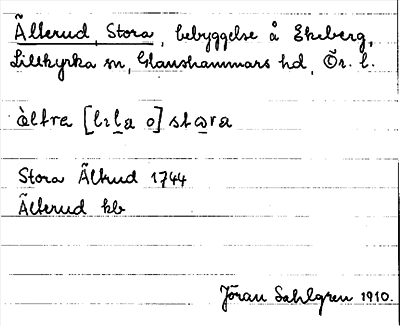 Älterud, Stora, bebyggelse å Ekeberg,
Lillkyrka sn, Glanshammars hd, Ör. l.
àltra [lıla o] stora
Stora Ältrud 1744
Älterud kb
Jöran Sahlgren 1910.